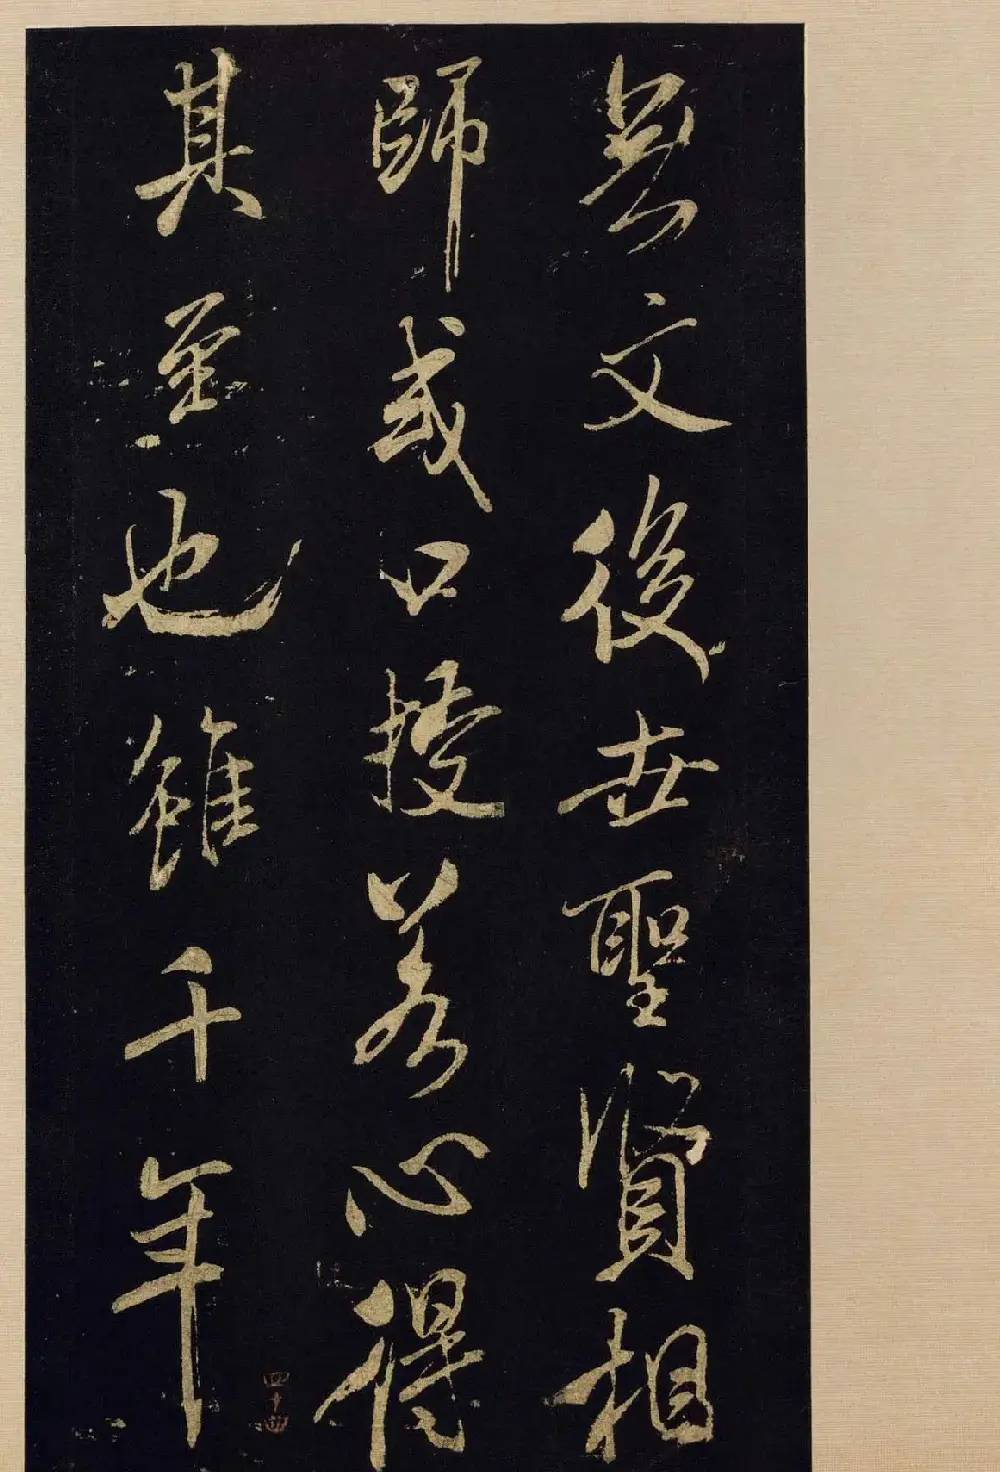 文後世聖賢相
師或口授若心得
其至也雖千年
四十四